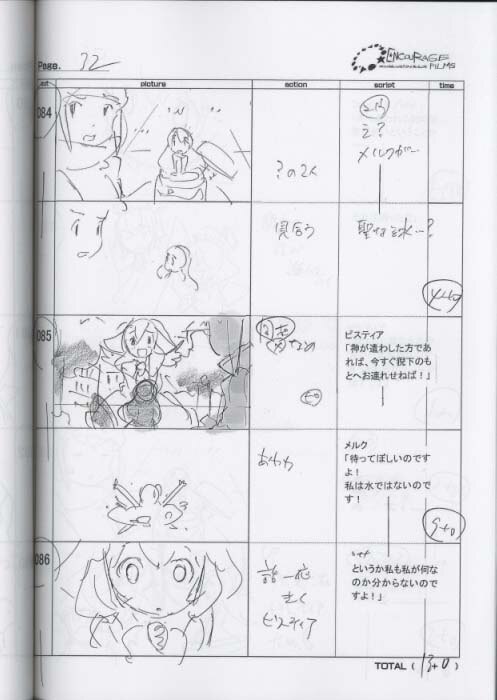 Page. 72
ENCOURAGE FILMS
cut picture action script time
084
え?
メルクが…
?の2人
見合う
聖なる水…?
4+0
085
なめ
ピスティア
「神が遣わした方であ
れば、今すぐ猊下のも
とへお連れせねば!」
あわわ
メルク
「待ってほしいのです
よ!
私は水ではないのです
!
9+0
086
ピスティア
というか私も私が何な
のか分からないので
すよ!」
TOTAL ( 13+0 )